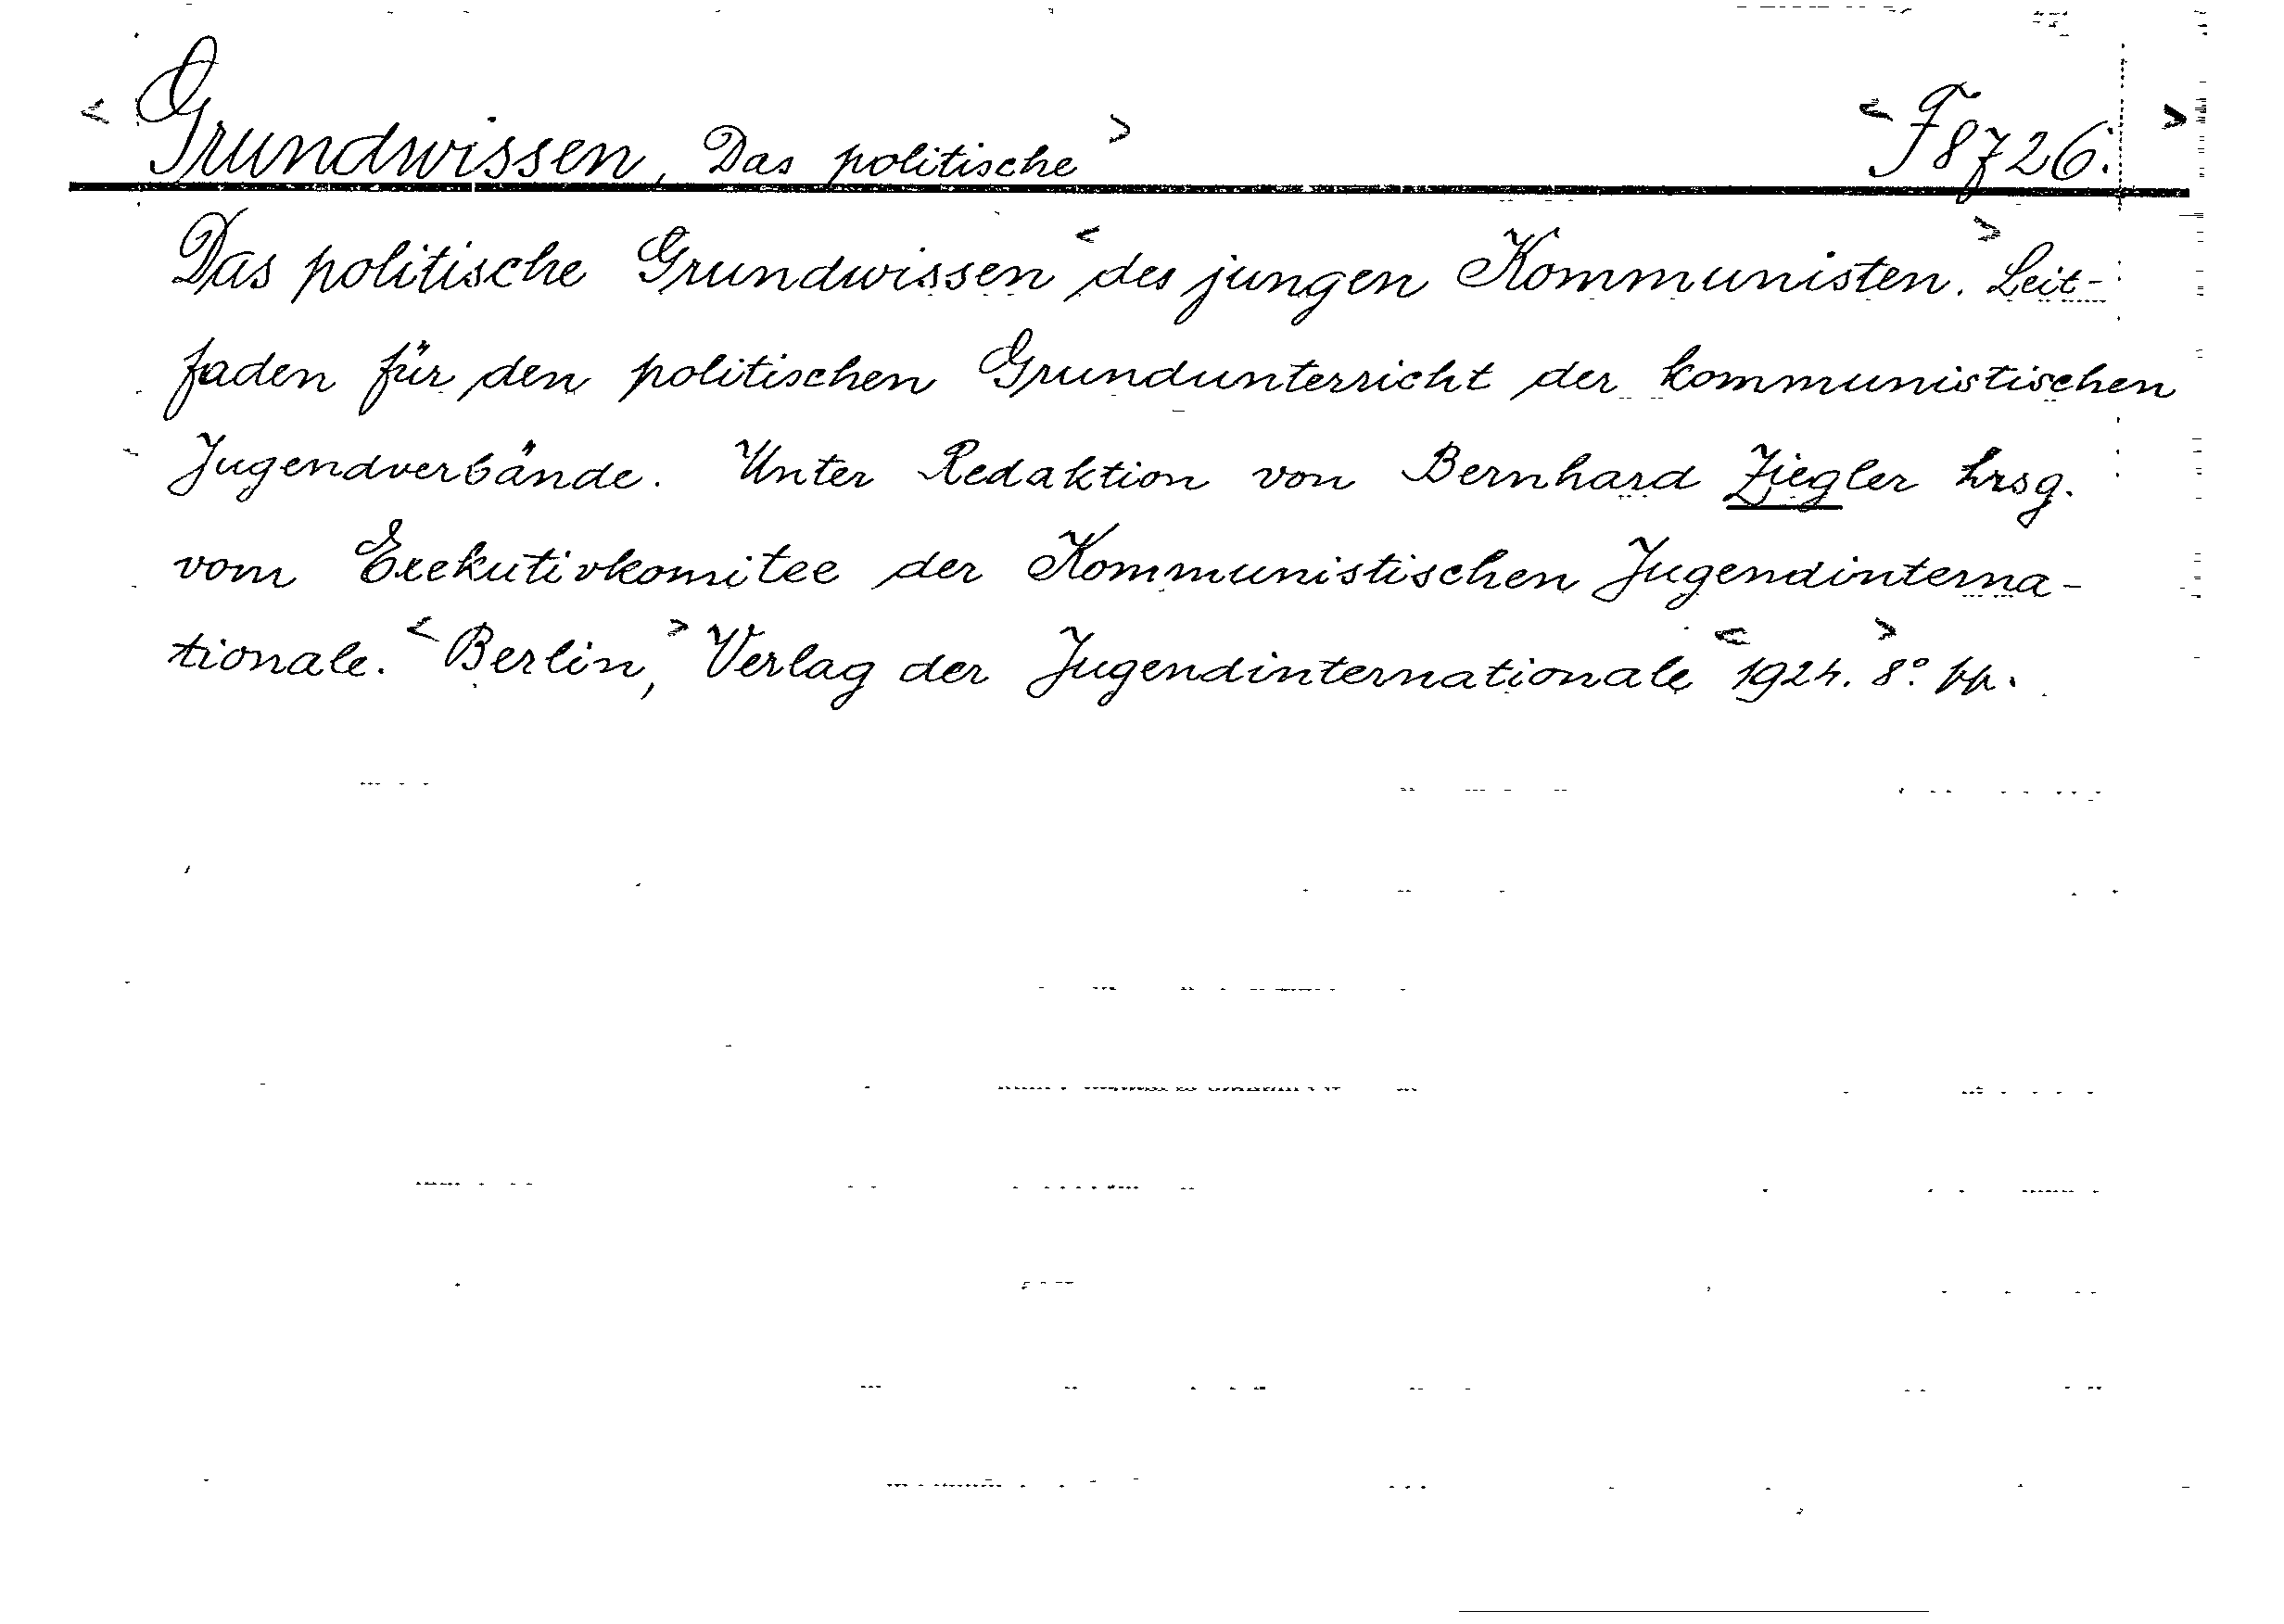 < Grundwissen, Das politische > < F 8726. >
Das politische Grundwissen < des jungen Kommunisten. > Leit-
faden für den politischen Grundunterricht der kommunistischen
Jugendverbände. Unter Redaktion von Bernhard Ziegler hrsg.
vom Exekutivkomitee der Kommunistischen Jugendinterna-
tionale. < Berlin, > Verlag der Jugendinternationale < 1924. > 8°.